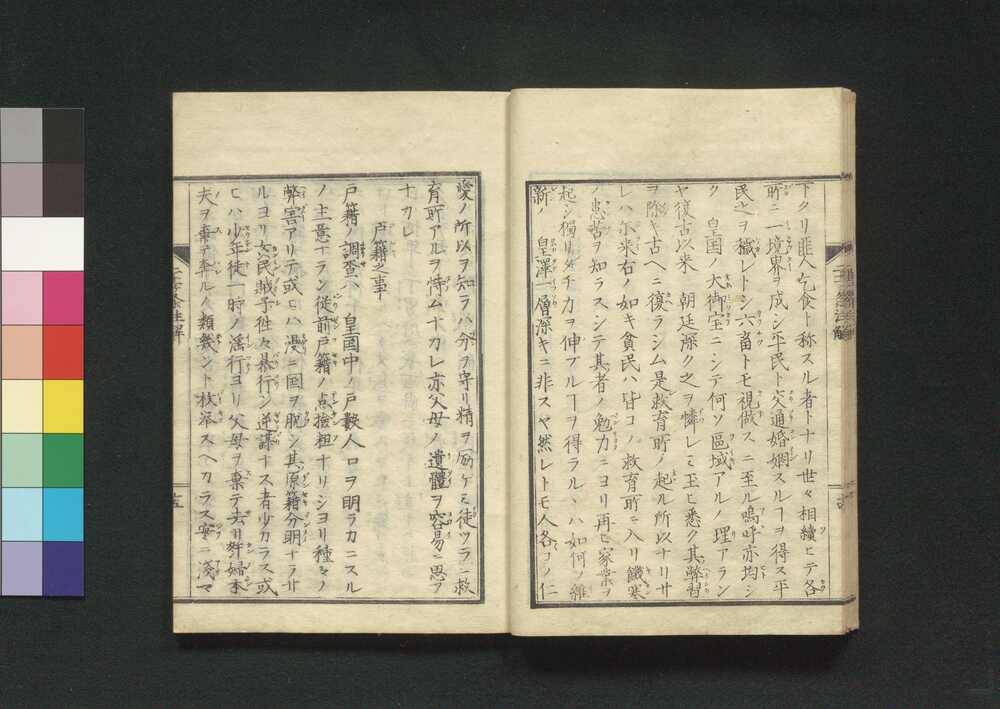 下クリ匪人乞食ト称スル者トナリ世々相續ヒテ各
所ニ一境界ヲ成シ平民ト交通婚姻スルヿヲ得ス平
民之ヲ穢レトシ六畜トモ視做スニ至ル嗚呼亦均シ
ク 皇国ノ大御宝ニシテ何ソ區域アルノ理アラン
ヤ復古以来 朝廷深ク之ヲ憐レミ玉ヒ悉ク其弊習
ヲ除キ古ヘニ復ラシム是救育所ノ起ル所以ナリサ
レハ尓来右ノ如キ貧民ハ皆コノ救育所ニ入リ饑寒
ノ患苦ヲ知ラスシテ其者ノ勉力ニヨリ再ヒ家業ヲ
起シ獨リタチ力ヲ伸ブルヿヲ得ラルヽハ如何ノ維
新ノ 皇澤一層深キニ非スヤ然レトモ人各コノ仁
愛ノ所以ヲ知ラハ分ヲ守リ精ヲ励ケミ徒ツラニ救
育所アルヲ恃ムナカレ亦父母ノ遺體ヲ容易ニ思フ
ナカレ
戸籍之事
戸籍ノ調査ハ 皇国中ノ戸数人口ヲ明ラカニスル
ノ主意ナラン従前戸籍ノ点撿粗ナリシヨリ種々ノ
弊害アリテ或ヒハ漫ニ国ヲ脱シ其原籍分明ナラサ
ルヨリ女民賊子徃々暴行シ逆謀ナス者少カラス或
ヒハ少年徒一時ノ淫行ヨリ父母ヲ棄テ去リ奸婦本
夫ヲ棄テ奔ルノ類幾ント枚舉スヘカラス実ニ淺マ